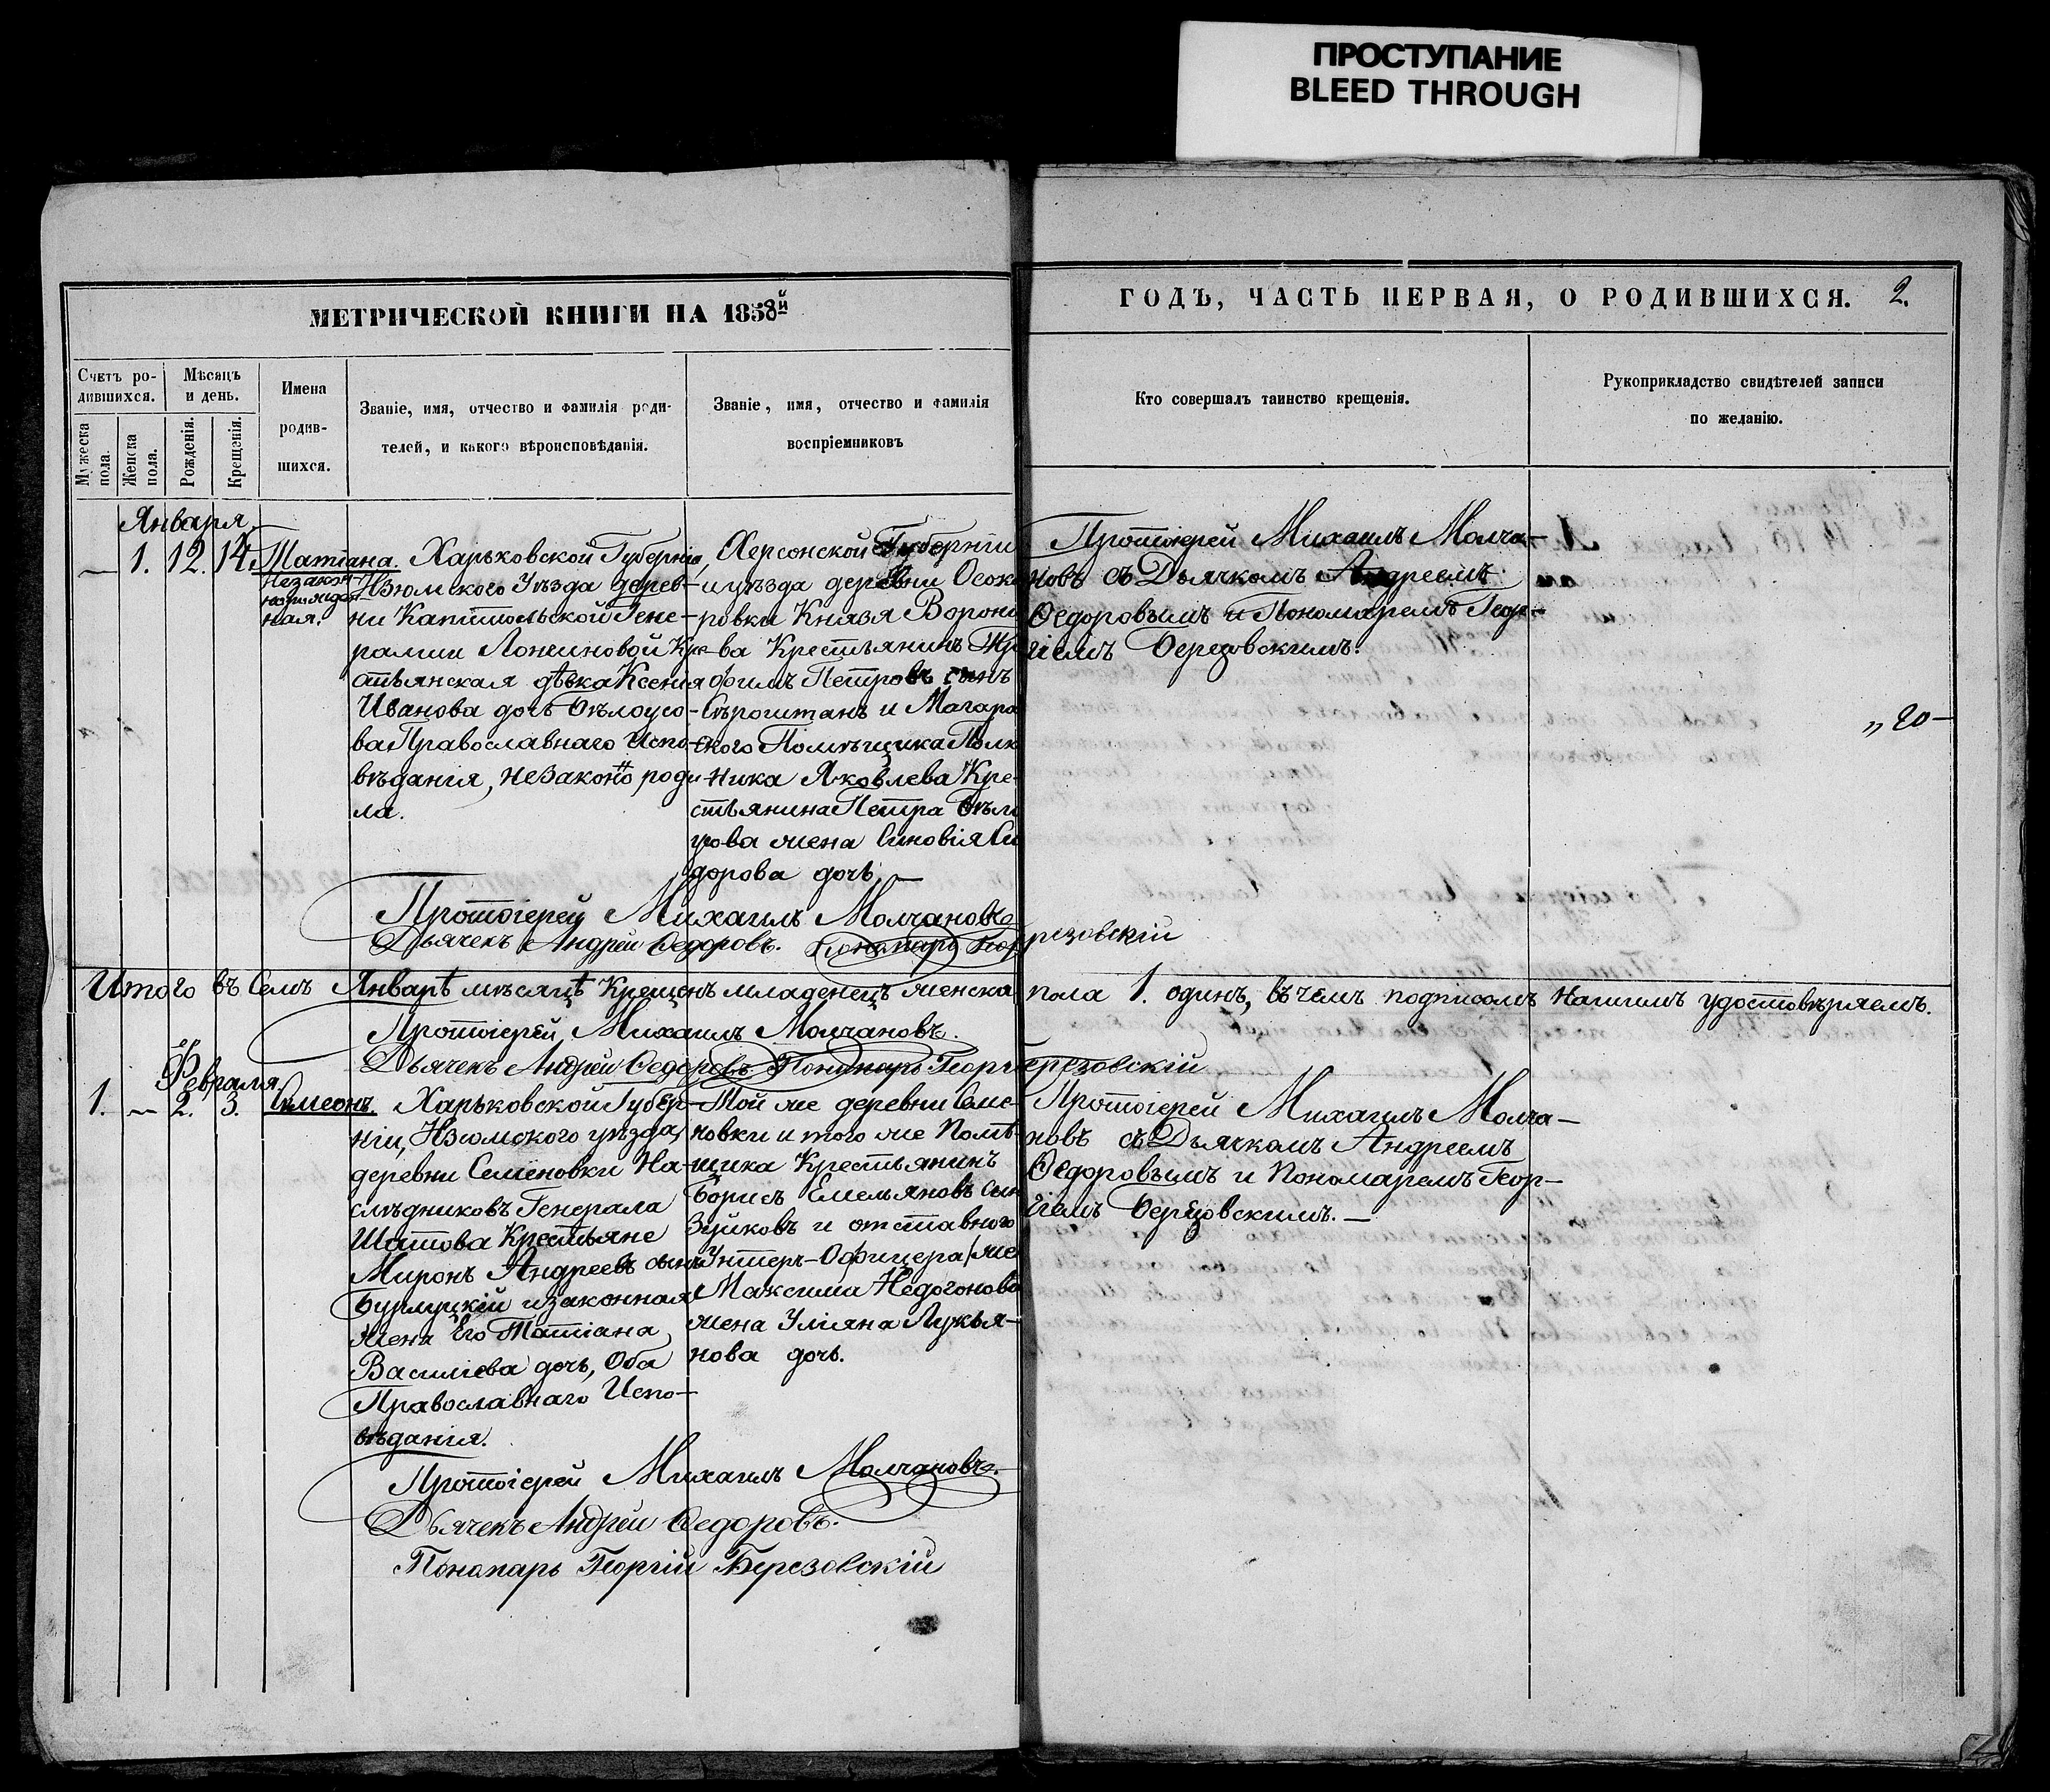 ПРОСТУПАНИЕ
BLEED THROUGH
МЕТРИЧЕСКОЙ КНИГИ НА 1858й
ГОДЪ, ЧАСТЬ ПЕРВАЯ, О РОДИВШИХСЯ. 2.
Счетъ ро-
дившихся.
Мужеска
пола.
Женска
пола.
Мѣсяцъ
и день.
Рожденія.
Крещенія.
Имена
родив-
шихся.
Званіе, имя, отчество и фамилія роди-
телей, и какого вѣроисповѣданія.
Званіе, имя, отчество и фамилія
воспріемниковъ
Кто совершалъ таинство крещенія.
Рукоприкладство свидѣтелей записи
по желанію.
Января
— 1. 12. 14.
Татіана.
Незакон-
норожден-
ная.
Харьковской Губерніи,
Изюмского Уѣзда дерев-
ни Капитольской Гене-
ралши Лонгиновой Кре-
стьянская дѣвка Ксенія
Иванова дочь Бѣлоусо-
ва Православнаго Испо-
вѣданія, незаконно роди-
ла.
Херсонской Губерніи
и уѣзда деревни Осоко
ровки Князя Воронц
ва Крестьянинъ Тро
фимъ Петровъ сынъ
Сѣроштанъ и
ского Помѣщика Полк
ника Яковлева Кре-
стьянина Петра Бѣло
усова жена Зиновія Си
дорова дочь. —
Протоіерей Михаилъ Молча-
новъ съ Дьячкомъ Андреемъ
Ѳедоровымъ и Пономаремъ Геор-
гіемъ Березовскимъ.
„20—
Протоіерей Михаилъ Молчановъ
Дьячекъ Андрей Ѳедоровъ. Пономарь Геор резовскій
Итого въ Семъ Январѣ мѣсяцѣ Крещенъ младенецъ женска пола 1. одинъ, въ чемъ подписомъ нашимъ удостовѣряемъ.
Протоіерей Михаилъ Молчановъ.
Дьячекъ Андрей Ѳедоровъ Пономарь Георгій Березовскій
Февраля
1. — 2. 3.
Симеонъ.
Харьковской Губер-
ніи, Изюмского уѣзда,
деревни Семеновки На-
слѣдниковъ Генерала
Шатова Крестьяне
Миронъ Андреевъ сынъ
Бурлуцкій и законная
жена Его Татіана
Василіева дочь, Оба
Православнаго Испо-
вѣданія.
Той же деревни Семе-
новки и того же Помѣ-
щика Крестьянинъ
Борисъ Емельяновъ сын
Зуйковъ и отставного
Унтеръ-Офицера
Максима Недогонова
жена Уліяна Лукья-
нова дочь.
Протоіерей Михаилъ Молча-
новъ съ Дьячкомъ Андреемъ
Ѳедоровымъ и Пономаремъ Геор-
гіемъ Березовскимъ. —
Протоіерей Михаилъ Молчановъ.
Дьячекъ Андрей Ѳедоровъ.
Пономарь Георгій Березовскій